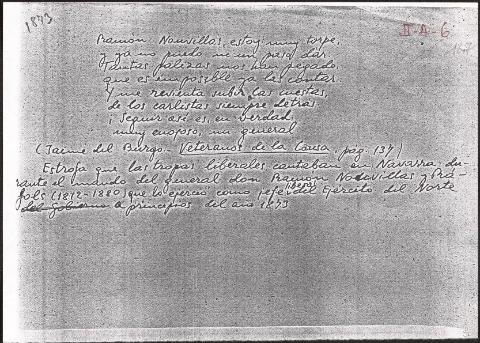 1873
II-A-6
Ramón Nouvillas, estoy muy torpe,
y ya no puedo ni un paso dar
Tantas palizas nos han pegado,
que es imposible ya las contar.
Y me revienta subir las cuestas,
de los carlistas siempre detras.
¡Seguir así es, en verdad,
muy enojoso, mi general
(Jaime del Burgo. Veteranos de la Causa. pág. 137)
Estrofa que las tropas liberales cantaban en Navarra du-
rante el mando del general don Ramón Nouvillas y Rà-
fols (1812-1880) que lo ejerció como jefe liberal del Ejército del Norte
del Gobierno a principios del año 1873